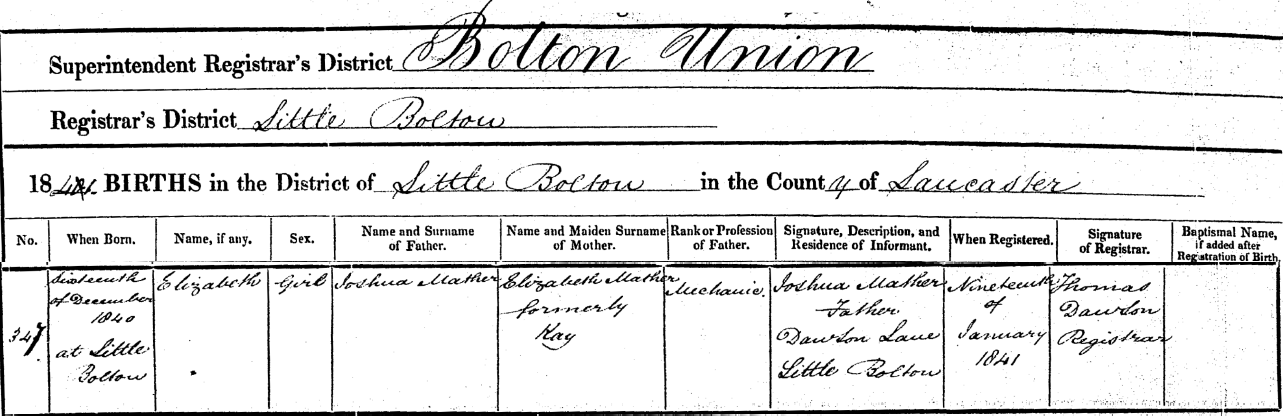 Superintendent Registrar's District Bolton Union
Registrar's District Little Bolton
1841 BIRTHS in the District of Little Bolton in the County of Lancaster
No. When Born. Name, if any. Sex. Name and Surname of Father. Name and Maiden Surname of Mother. Rank or Profession of Father. Signature, Description, and Residence of Informant. When Registered. Signature of Registrar. Baptismal Name, if added after Registration of Birth.
347
Sixteenth
of December
1840
at Little
Bolton
Elizabeth
Girl
Joshua Mather
Elizabeth Mather
formerly
Kay
Mechanic.
Joshua Mather
Father
Dawson Lane
Little Bolton
Nineteenth
of
January
1841
Thomas
Dawson
Registrar